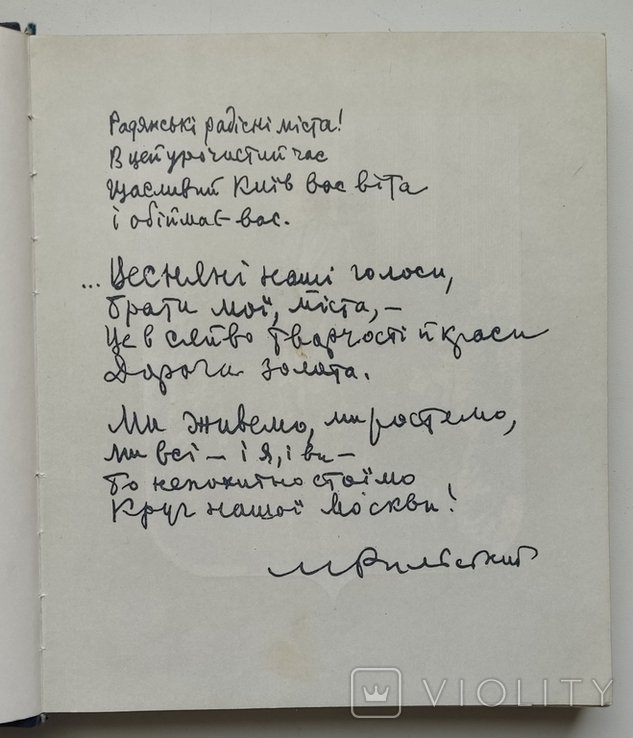 Радянські радісні міста!
В цей урочистий час
Щасливий Київ вас віта
і обіймає вас.
...Це єднані наші голоси,
брати мої, міста, –
Це в сяйво творчості й краси
Дорога золота.
Ми живемо, ми ростемо,
ми всі – і я, і ви –
Бо непохитно стоїмо
Круг нашої Москви!
М Рильський
VIOLITY